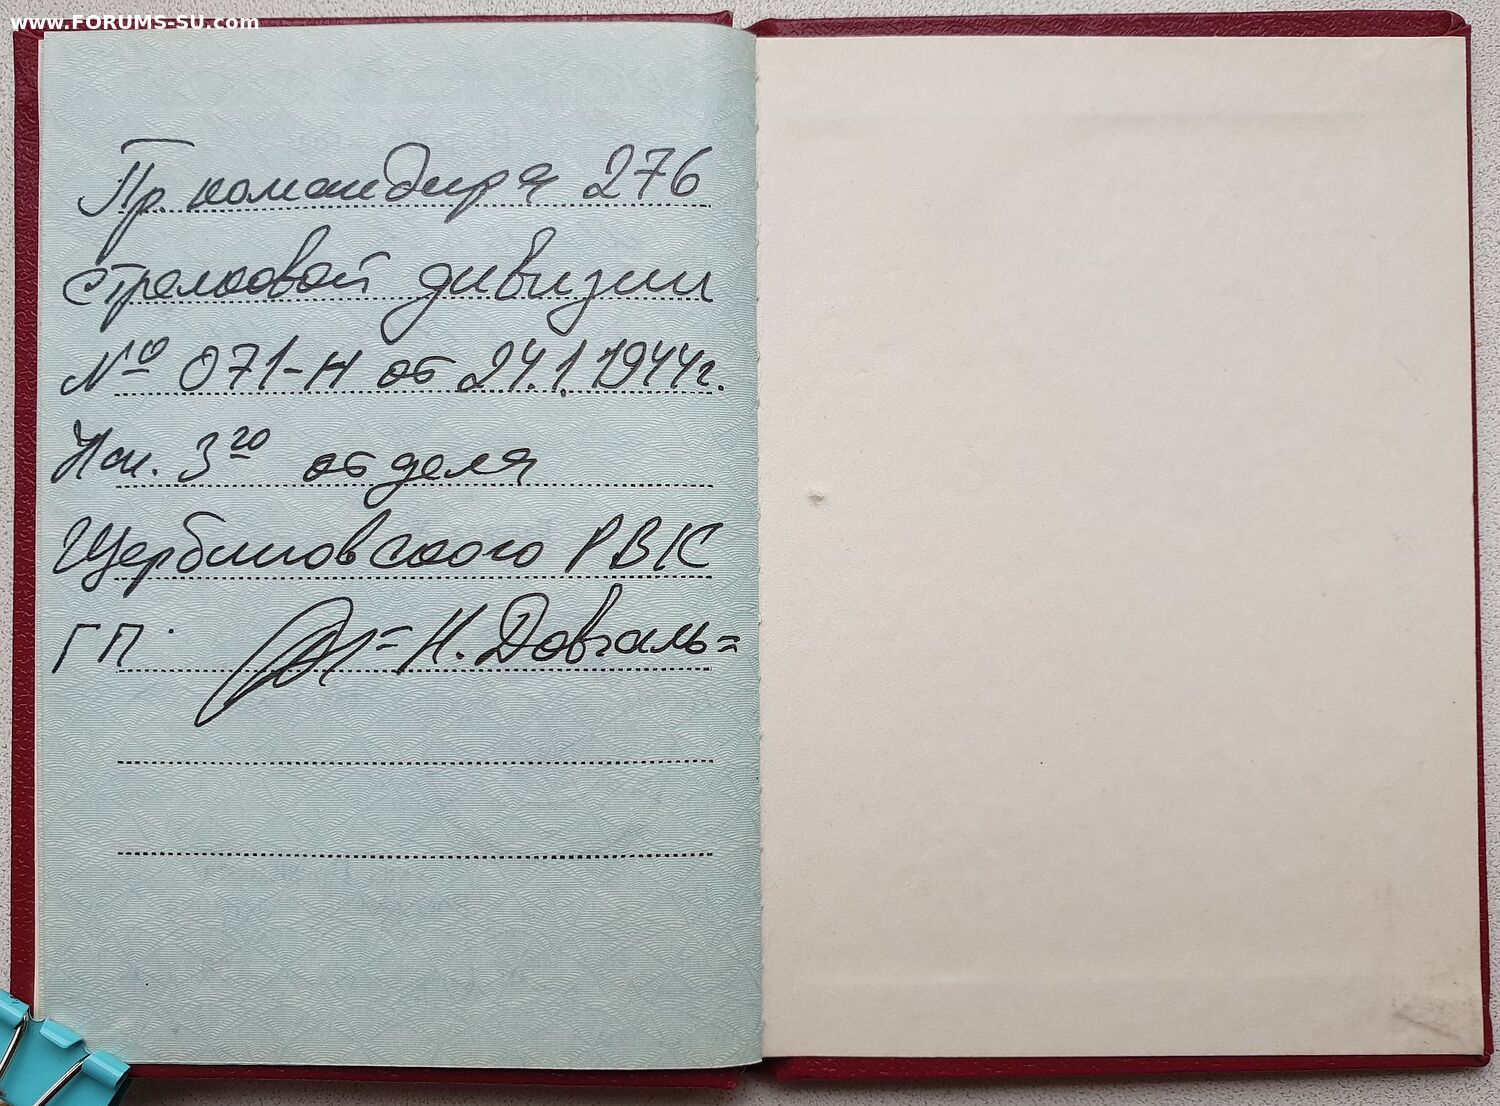 www.FORUMS-SU.com
Пр. командира 276
стрелковой дивизии
№ 071-Н от 24.1.1944г.
Нач. 3го отдела
Щербиновского РВК
ГП. = Н. Довгаль =